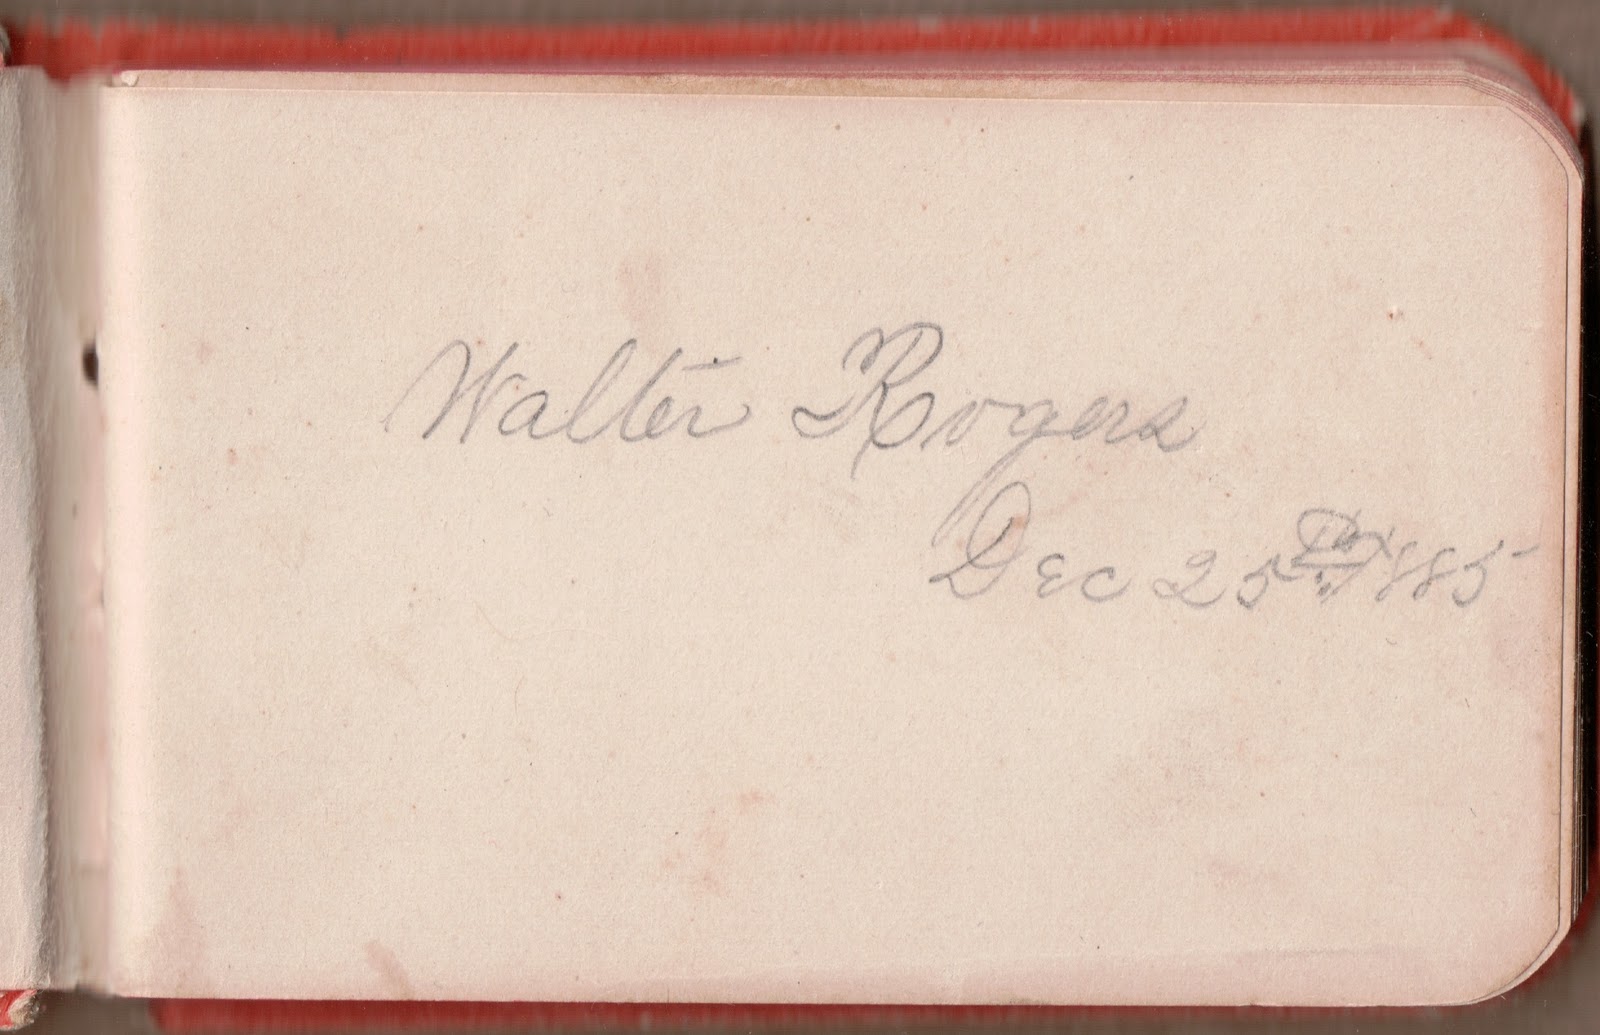 Walter Rogers
Dec 25th 1885